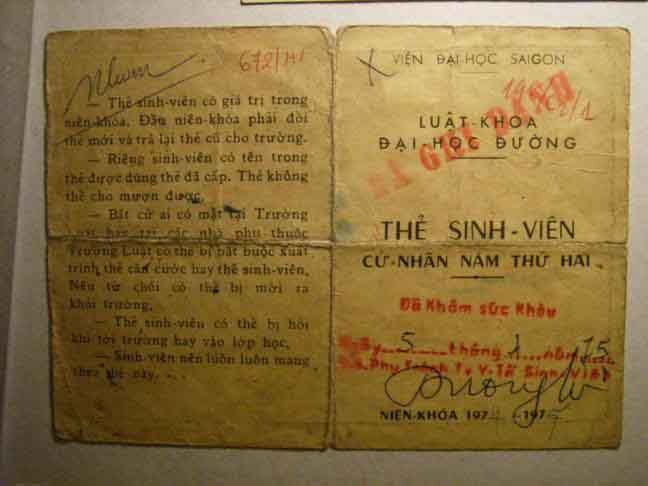 672/
— Thẻ sinh-viên có giá trị trong
niên-khóa. Đầu niên-khóa phải đổi
thẻ mới và trả lại thẻ cũ cho trường.
— Riêng sinh-viên có tên trong
thẻ được dùng thẻ đã cấp. Thẻ không
thể cho mượn được.
— Bất cứ ai có mặt tại Trường
Luật hay tại các nhà phụ thuộc
Trường Luật có thể bị bắt buộc xuất
trình thẻ căn cước hay thẻ sinh-viên.
Nếu từ chối có thể bị mời ra
khỏi trường.
— Thẻ sinh-viên có thể bị hỏi
khi tới trường hay vào lớp học.
— Sinh-viên nên luôn luôn mang
theo thẻ này.
X
VIỆN ĐẠI-HỌC SAIGON
LUẬT-KHOA
ĐẠI-HỌC ĐƯỜNG
ĐÃ GHI
THẺ SINH-VIÊN
CỬ-NHÂN NĂM THỨ HAI
Đã Khám sức Khỏe
Ngày 5 tháng 1 năm 75
B.S. Phụ Trách Y-Tế Sinh-Viên
NIÊN-KHÓA 1974 - 1975